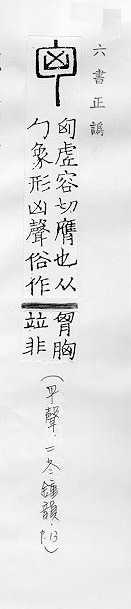 六書正譌
匈虛容切膺也从
勹象形凶聲俗作
胷胸
竝非
(平聲.二冬鐘韻.P.13)